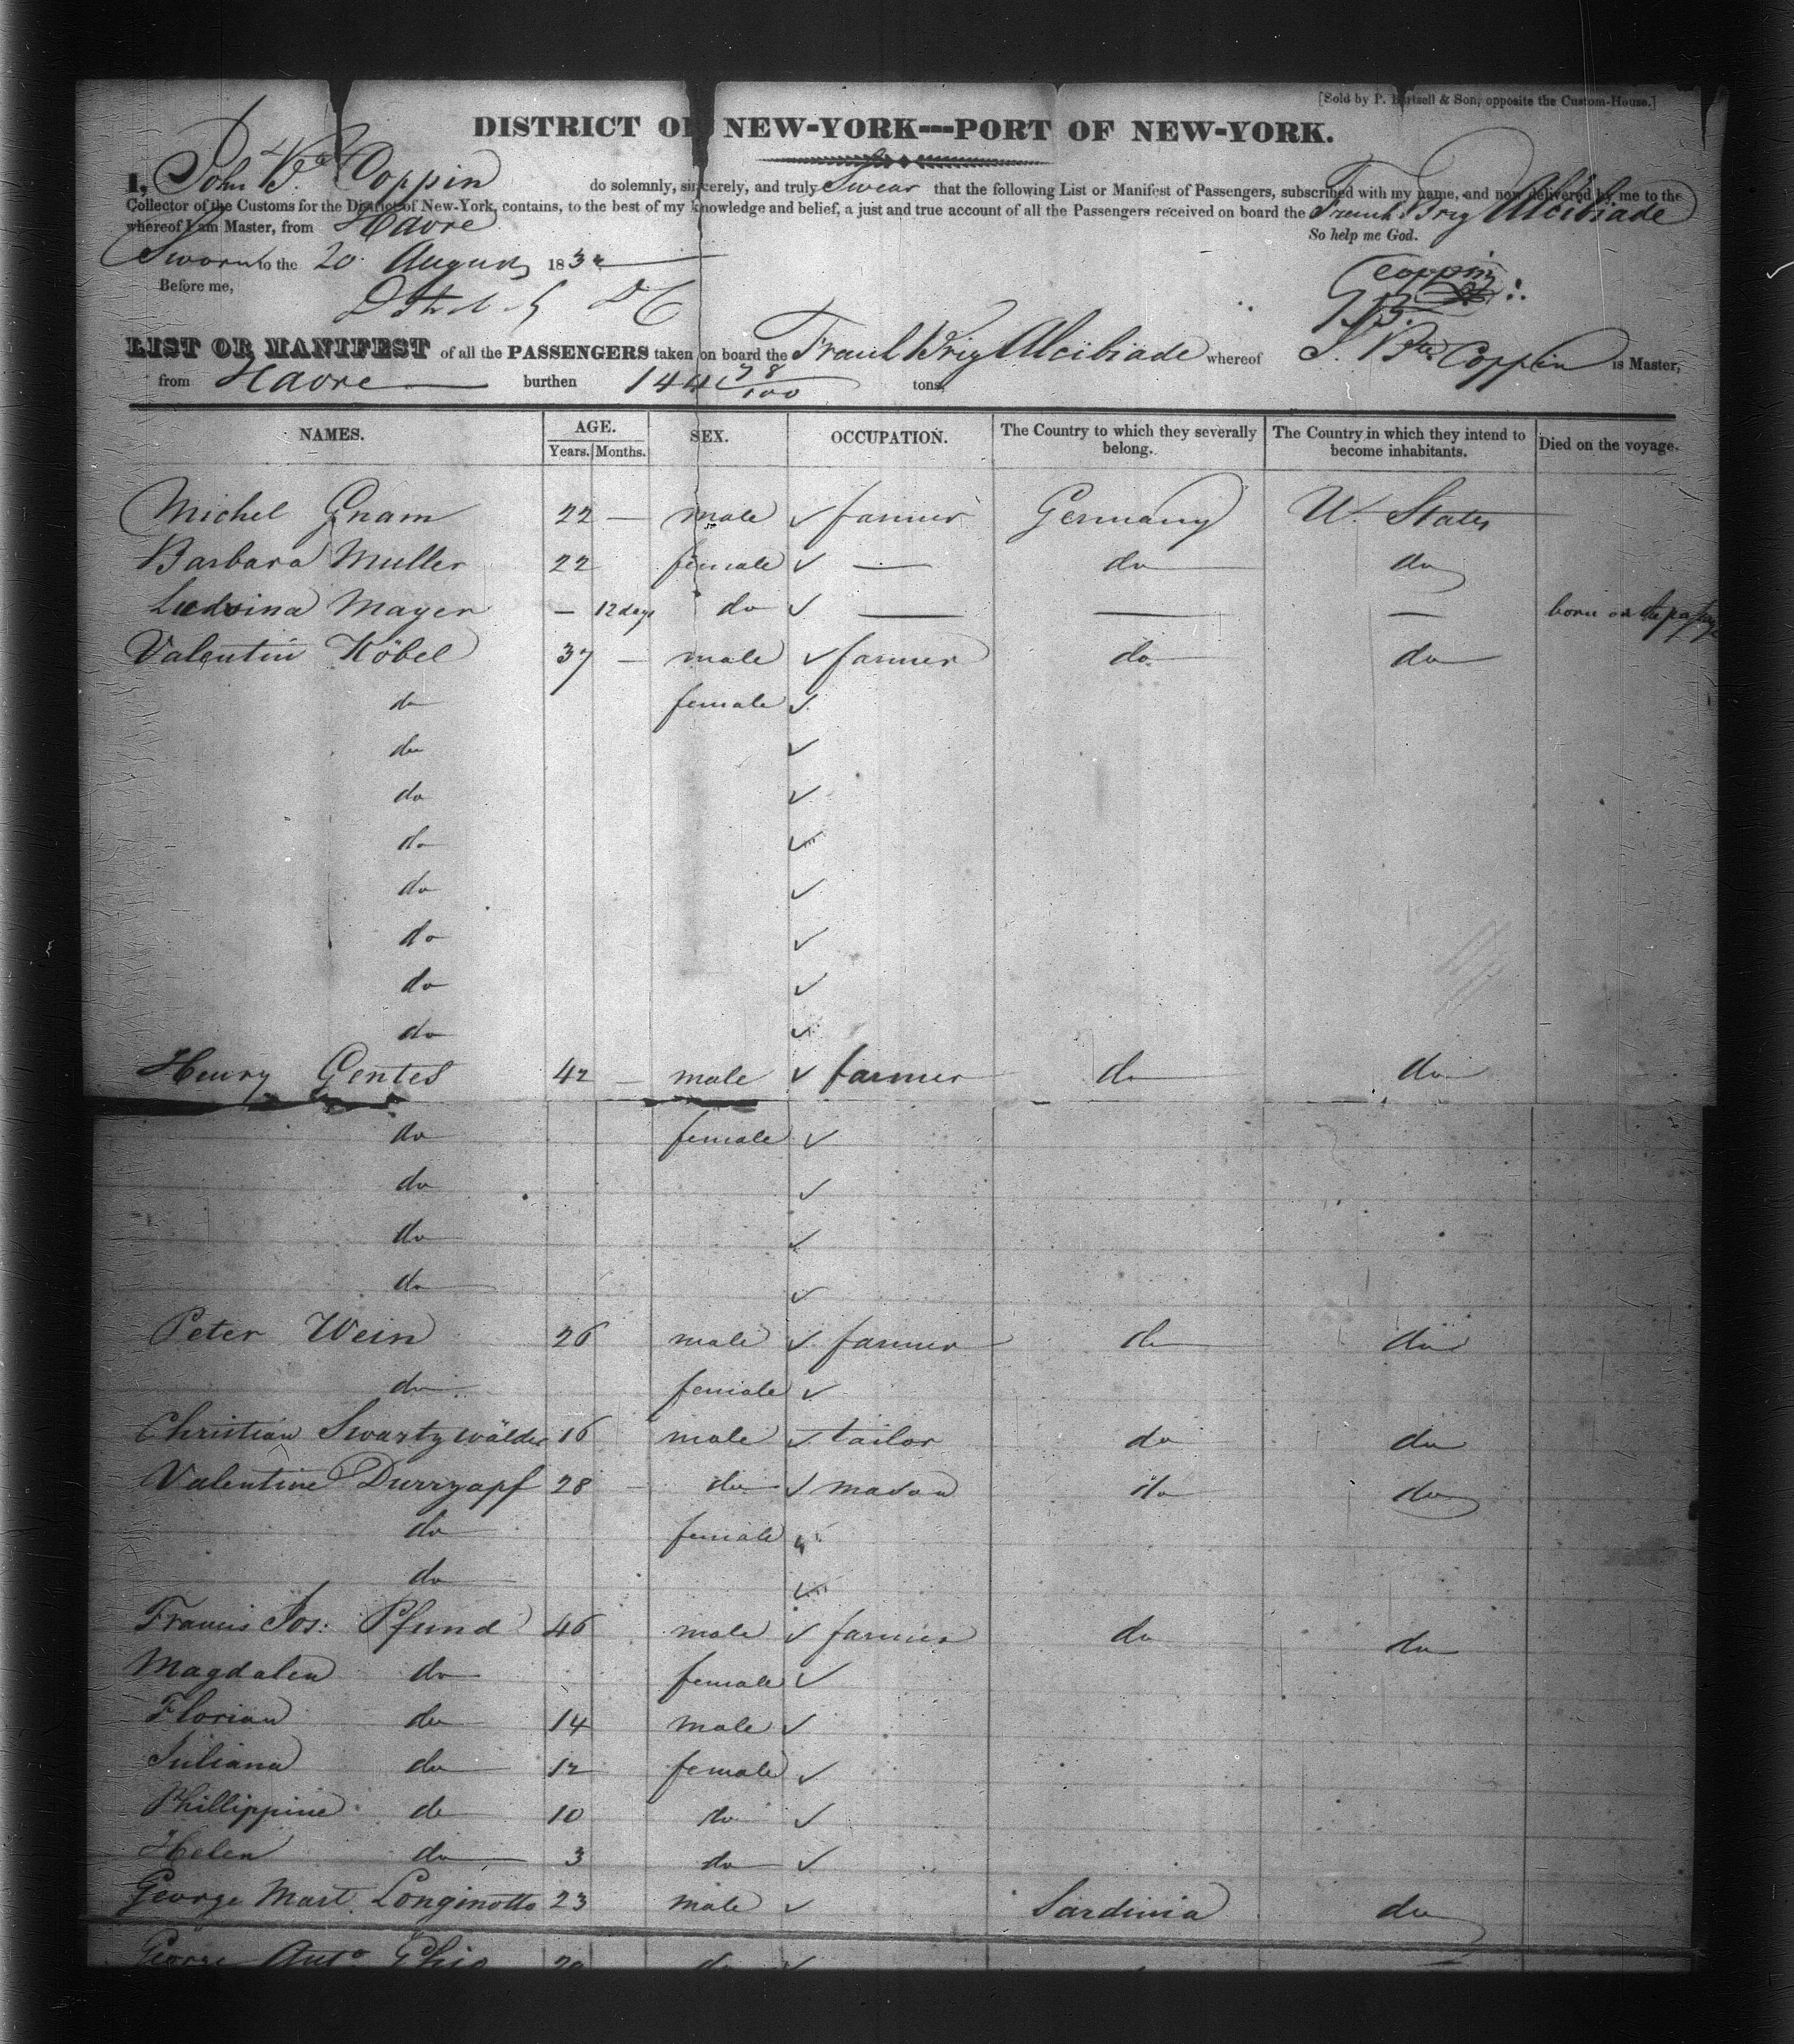 [Sold by P. Burtsell & Son, opposite the Custom-House.]
DISTRICT OF NEW-YORK---PORT OF NEW-YORK.
I, John Bte Coppin do solemnly, sincerely, and truly Swear that the following List or Manifest of Passengers, subscribed with my name, and now delivered by me to the
Collector of the Customs for the District of New-York, contains, to the best of my knowledge and belief, a just and true account of all the Passengers received on board the French Brig Alcibiade
whereof I am Master, from Havre So help me God.
Sworn to the 20 August 183
Before me, Coppin
LIST OR MANIFEST of all the PASSENGERS taken on board the French Brig Alcibiade whereof J. Bte Coppin is Master,
from Havre burthen 144 78/100 tons,
NAMES. AGE. Years. Months. SEX. OCCUPATION. The Country to which they severally belong. The Country in which they intend to become inhabitants. Died on the voyage.
Michel Gnam 22 — male ✓ farmer Germany U. States
Barbara Muller 22 female ✓ — do do
Ludvina Mayer — 12 days do ✓ — — — born on the passage
Valentin Köbel 37 — male ✓ farmer do do
do female ✓
do ✓
do ✓
do ✓
do ✓
do ✓
do ✓
do ✓
Henry Gentes 42 — male ✓ farmer do do
do female ✓
do ✓
do ✓
do ✓
Peter Wein 26 male ✓ farmer do do
do female ✓
Christian Swartzwälder 16 male ✓ tailor do do
Valentine Durrzapf 28 do ✓ mason do do
do female ✓
do ✓
Francis Jos: Pfund 46 male ✓ farmer do do
Magdalen do female ✓
Florian do 14 male ✓
Juliana do 12 female ✓
Phillippine do 10 do ✓
Helen do 3 do ✓
George Mart. Longinotto 23 male ✓ Sardinia do
George Anto Ghio do ✓